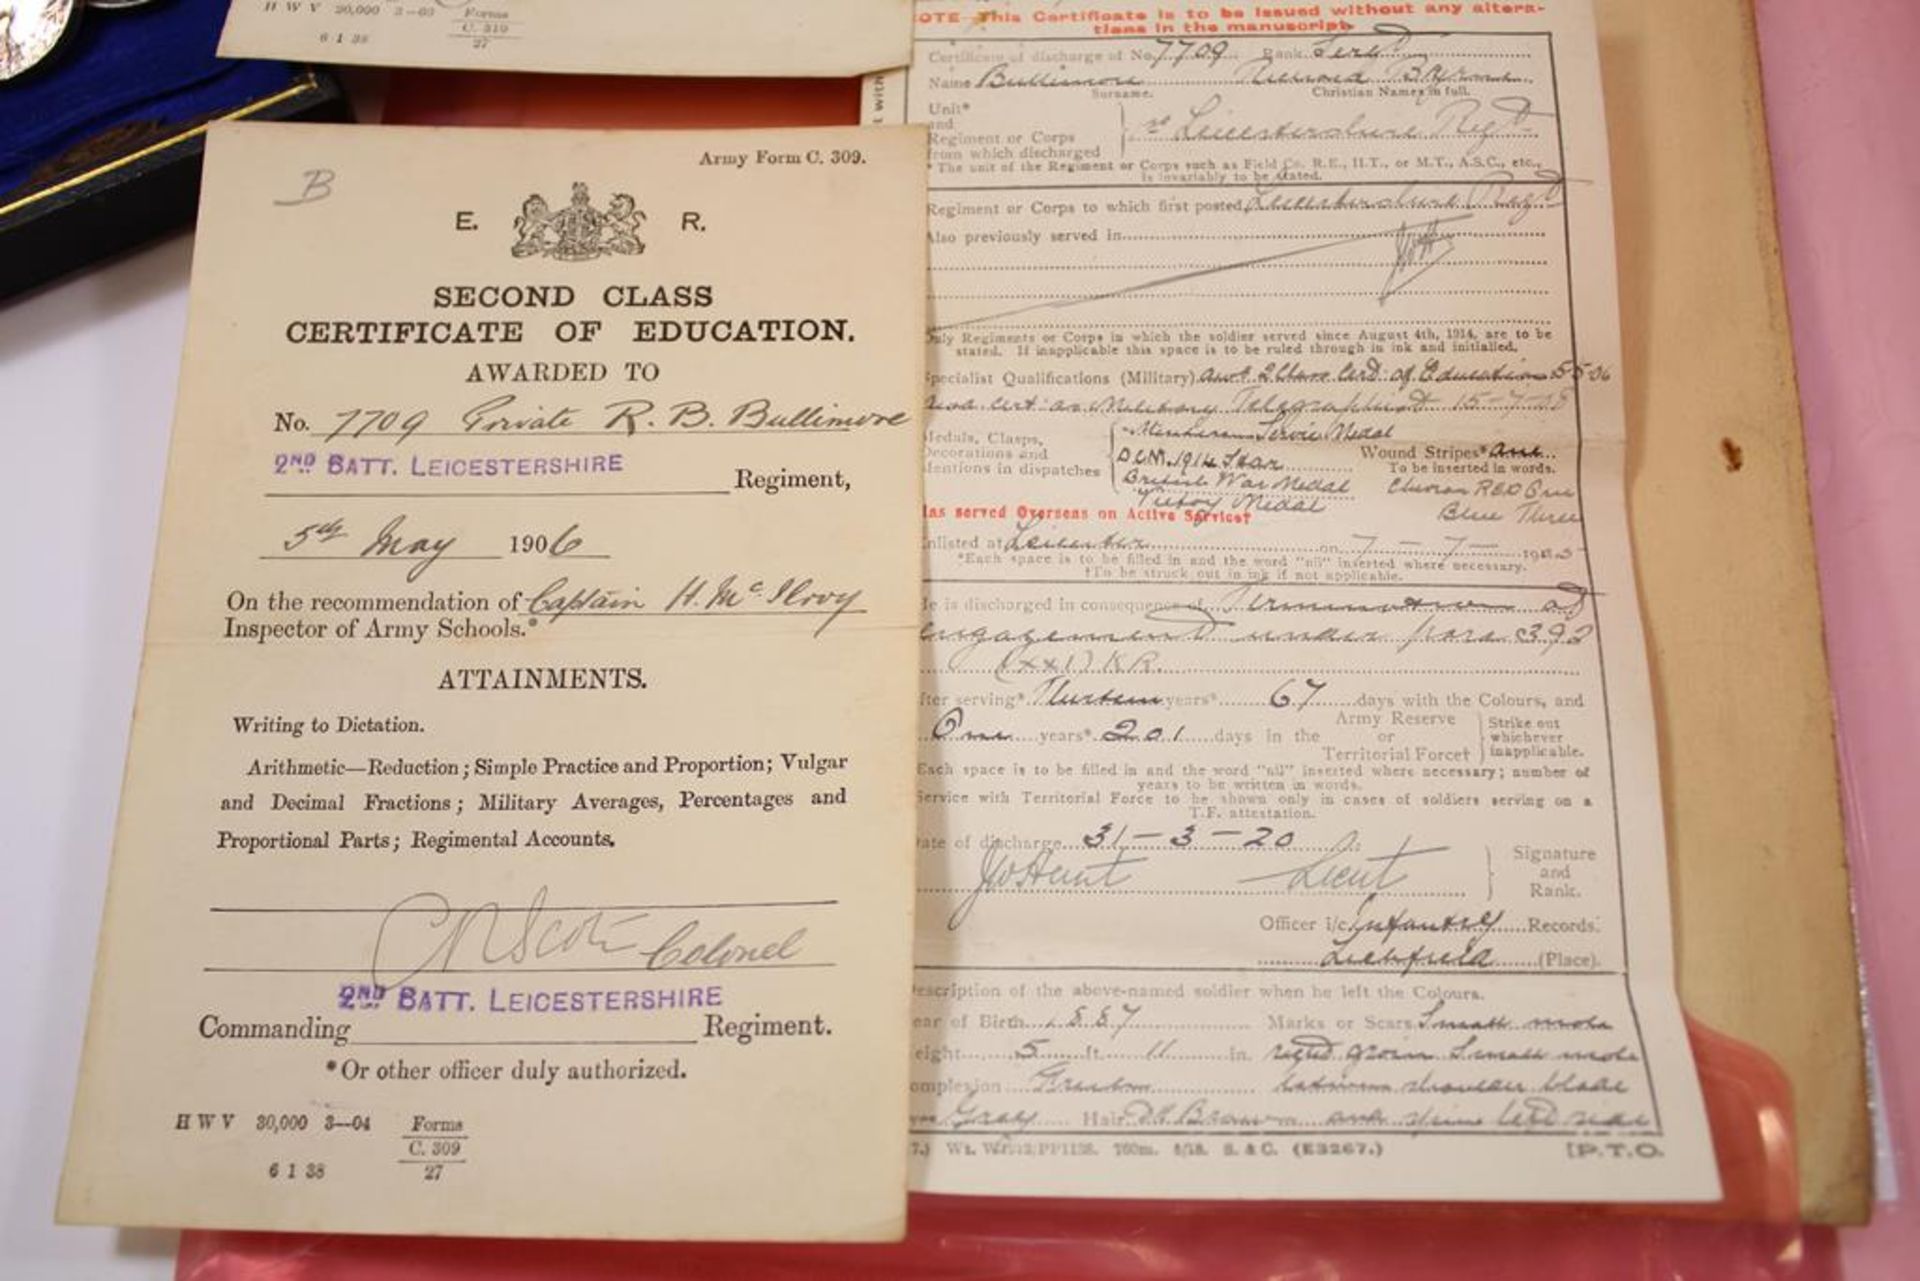 H W V 30,000 2-03 Forms
C. 310
6 1 38 27
B
Army Form C. 309.
E. R.
SECOND CLASS
CERTIFICATE OF EDUCATION.
AWARDED TO
No. 7709 Private R. B. Bullimore
2ND BATT. LEICESTERSHIRE
Regiment,
5th May 1906
On the recommendation of Captain H. McIlroy
Inspector of Army Schools.*
ATTAINMENTS.
Writing to Dictation.
Arithmetic—Reduction; Simple Practice and Proportion; Vulgar
and Decimal Fractions; Military Averages, Percentages and
Proportional Parts; Regimental Accounts.
Colonel
2ND BATT. LEICESTERSHIRE
Commanding Regiment.
*Or other officer duly authorized.
H W V 30,000 3—04 Forms
C. 309
6 1 38 27
NOTE—This Certificate is to be issued without any altera-
tions in the manuscript.
Certificate of discharge of No. 7709 Rank Sergt
Name Bullimore
Surname. Christian Names in full.
Unit*
and
Regiment or Corps
from which discharged
Leicestershire Regt
*The unit of the Regiment or Corps such as Field Co. R.E., H.T., or M.T., A.S.C., etc.,
is invariably to be stated.
Regiment or Corps to which first posted Leicestershire Regt
Also previously served in
Only Regiments or Corps in which the soldier served since August 4th, 1914, are to be
stated. If inapplicable this space is to be ruled through in ink and initialled.
Specialist Qualifications (Military) Awd 2 Class Cert of Education 5-5-06
Awd cert as Military Telegraphist 15-7-08
Medals, Clasps,
Decorations and
Mentions in dispatches
Meritorious Service Medal
DCM. 1914 Star
British War Medal
Victory Medal
Wound Stripes* One
To be inserted in words.
Chevron RED One
Blue Three
Has served Overseas on Active Service†
Enlisted at Leicester on 7-7-1905
*Each space is to be filled in and the word "nil" inserted where necessary.
†To be struck out in ink if not applicable.
He is discharged in consequence of Termination of
engagement under para 392
(xxi) KR.
after serving* Thirteen years* 67 days with the Colours, and
One years* 201 days in the Army Reserve
or
Territorial Force†
Strike out
whichever
inapplicable.
Each space is to be filled in and the word "nil" inserted where necessary; number of
years to be written in words.
Service with Territorial Force to be shown only in cases of soldiers serving on a
T.F. attestation.
Date of discharge 31-3-20
Lieut
Signature
and
Rank.
Officer i/c Infantry Records.
Lichfield (Place).
Description of the above-named soldier when he left the Colours.
Year of Birth 1887 Marks or Scars Small mole
Height 5 ft. 11 in. right groin Small mole
Complexion Fresh between shoulder blade
Eyes Gray Hair Dk Brown and spine left side
760m. 5/18. S. & C. (E3267.) [P.T.O.